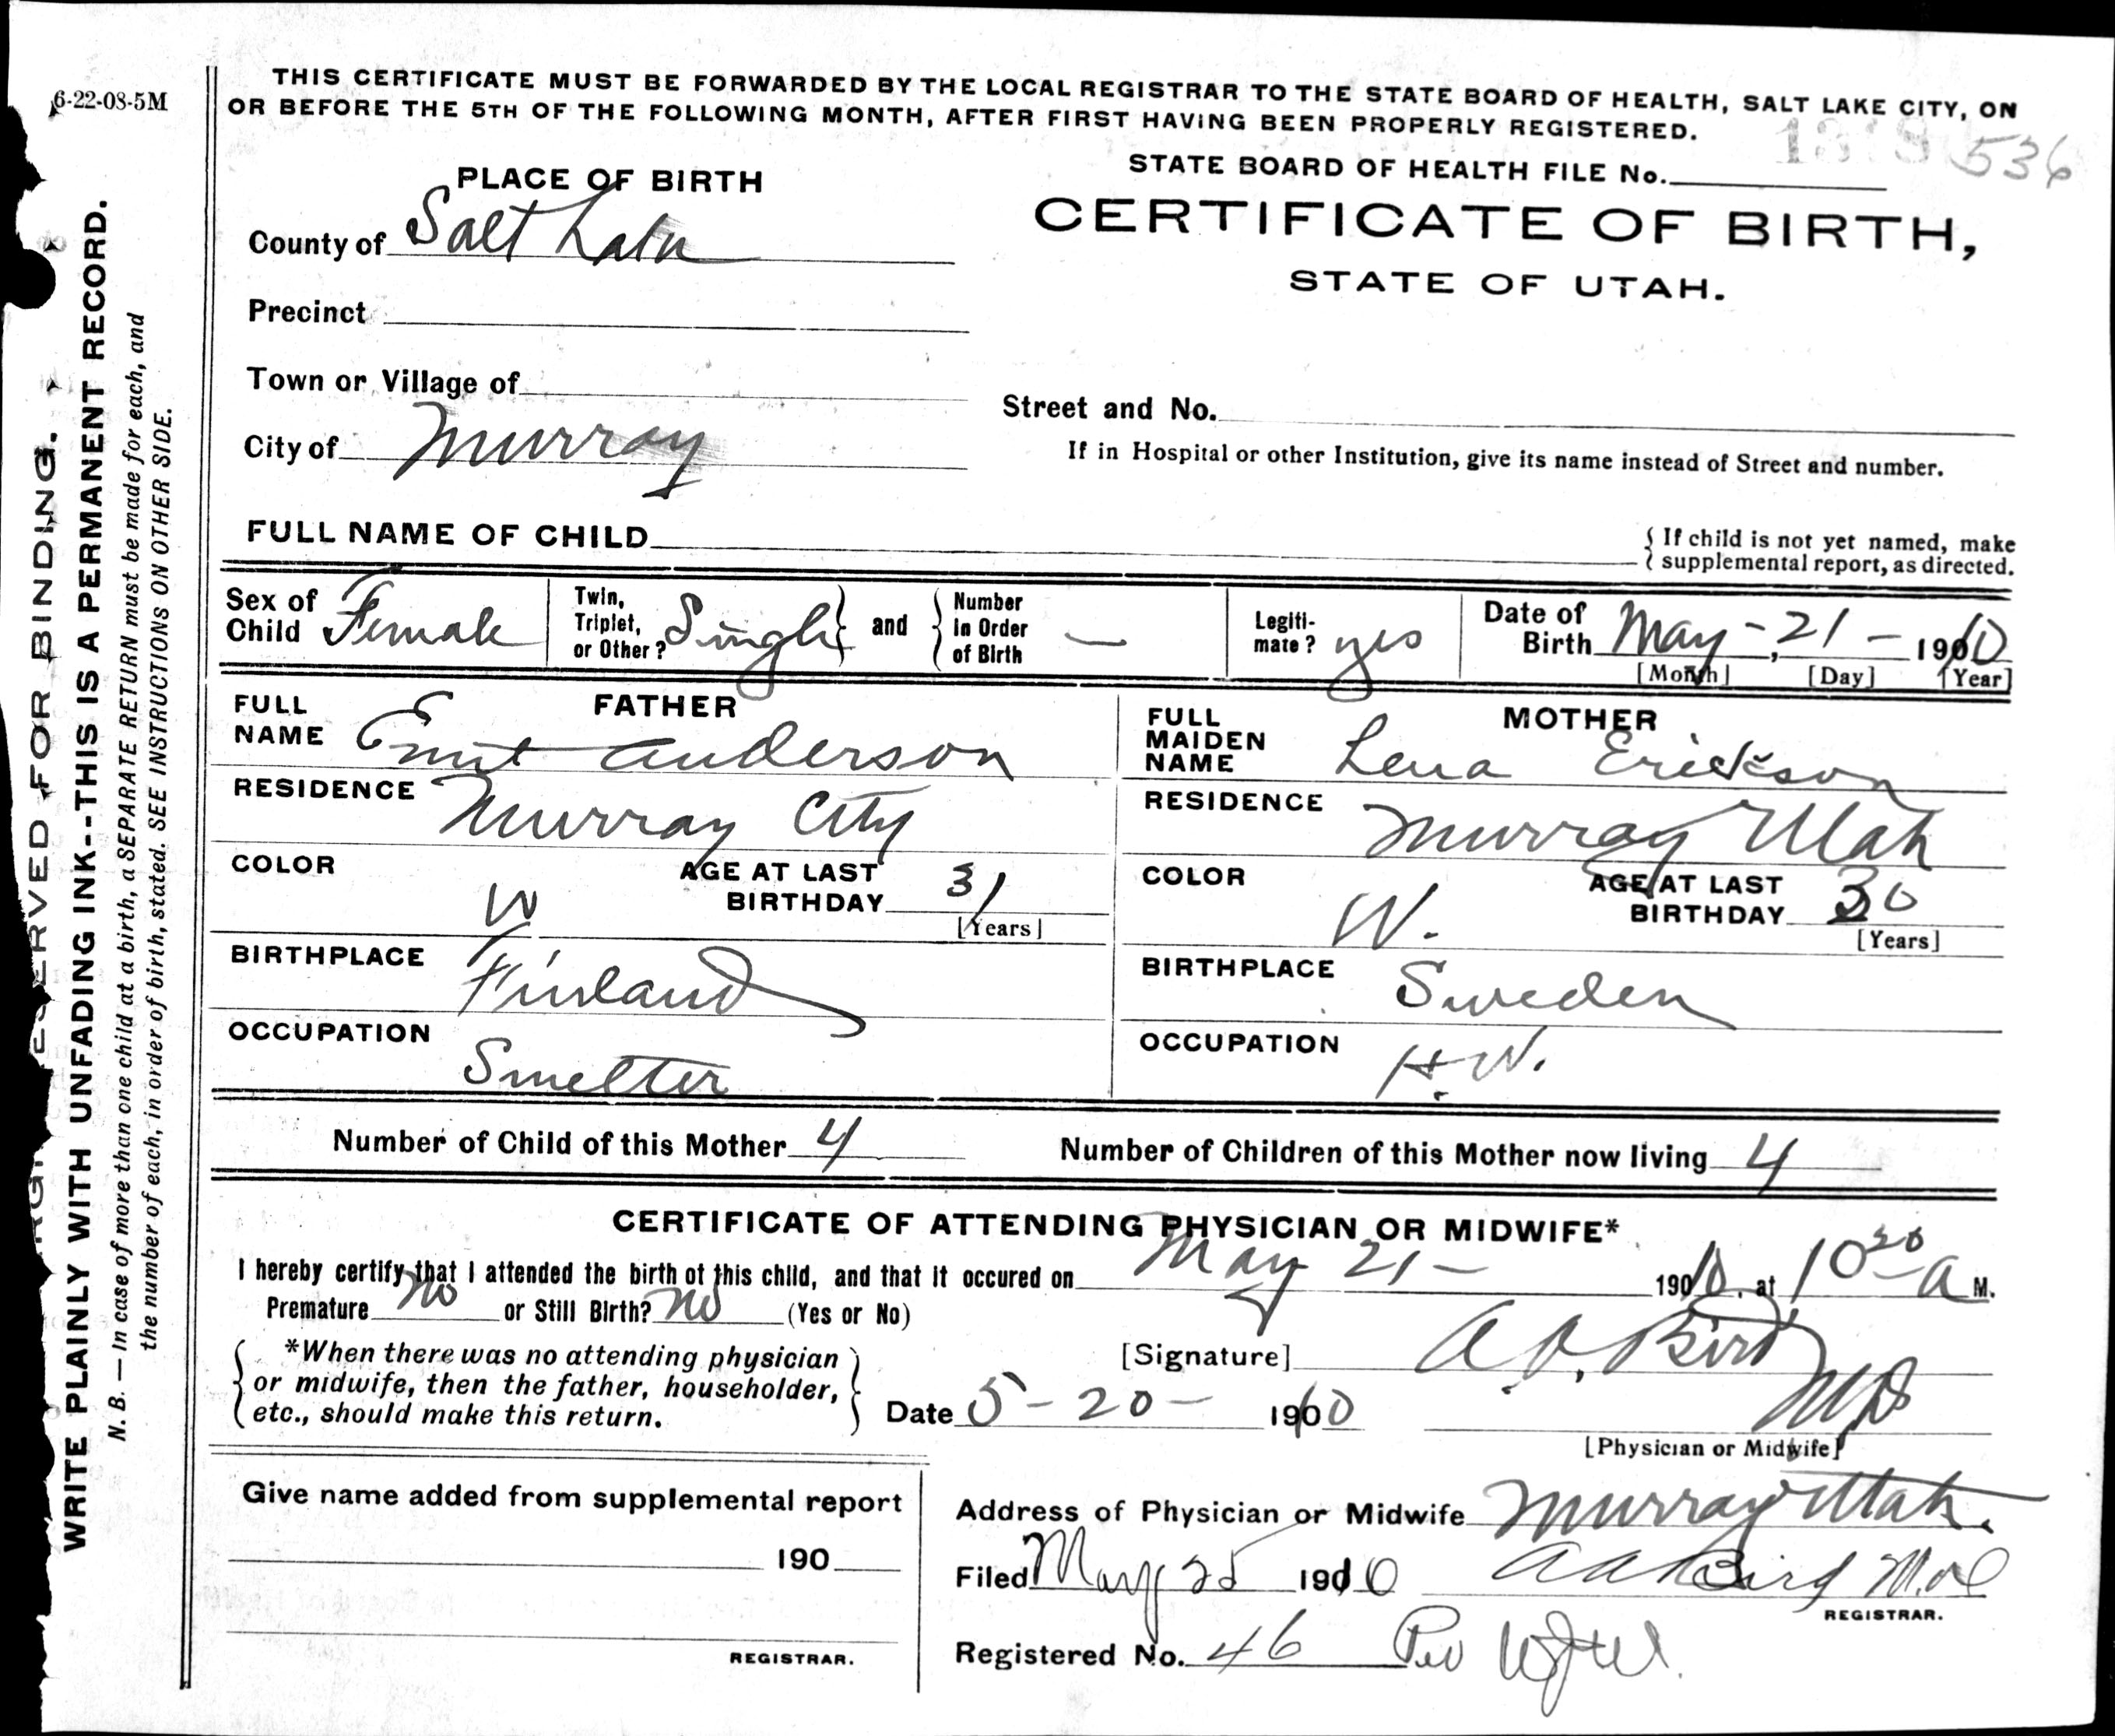 6-22-08-5M
THIS CERTIFICATE MUST BE FORWARDED BY THE LOCAL REGISTRAR TO THE STATE BOARD OF HEALTH, SALT LAKE CITY, ON
OR BEFORE THE 5TH OF THE FOLLOWING MONTH, AFTER FIRST HAVING BEEN PROPERLY REGISTERED.
STATE BOARD OF HEALTH FILE No. 536
CERTIFICATE OF BIRTH,
STATE OF UTAH.
PLACE OF BIRTH
County of Salt Lake
Precinct
Town or Village of
Street and No.
City of Murray
If in Hospital or other Institution, give its name instead of Street and number.
FULL NAME OF CHILD
{ If child is not yet named, make
supplemental report, as directed.
Sex of Child Female
Twin, Triplet, or Other? Single } and { Number In Order of Birth —
Legiti-mate? yes
Date of Birth May - 21 - 1910
[Month] [Day] [Year]
FATHER
FULL NAME Anderson
RESIDENCE Murray City
COLOR W
AGE AT LAST BIRTHDAY 31
[Years]
BIRTHPLACE Finland
OCCUPATION Smelter
MOTHER
FULL MAIDEN NAME Lena Erickson
RESIDENCE Murray Utah
COLOR W.
AGE AT LAST BIRTHDAY 30
[Years]
BIRTHPLACE Sweden
OCCUPATION H.W.
Number of Child of this Mother 4
Number of Children of this Mother now living 4
CERTIFICATE OF ATTENDING PHYSICIAN OR MIDWIFE*
I hereby certify that I attended the birth of this child, and that it occured on May 21 - 1910, at 10 20 a M.
Premature no or Still Birth? no (Yes or No)
*When there was no attending physician
or midwife, then the father, householder,
etc., should make this return.
[Signature] Bird MD
Date 5 - 20 - 1910
[Physician or Midwife]
Give name added from supplemental report
190
REGISTRAR.
Address of Physician or Midwife Murray Utah.
Filed May 25 1910 Bird M.D
REGISTRAR.
Registered No. 46 Per
RESERVED FOR BINDING.
WRITE PLAINLY WITH UNFADING INK--THIS IS A PERMANENT RECORD.
N. B. — In case of more than one child at a birth, a SEPARATE RETURN must be made for each, and
the number of each, in order of birth, stated. SEE INSTRUCTIONS ON OTHER SIDE.